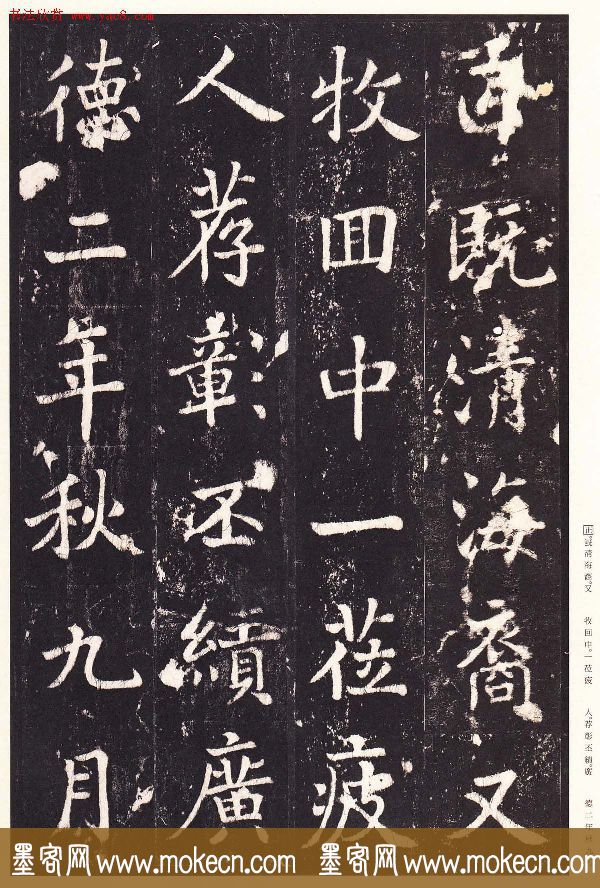 书法欣赏 www.yac8.com
既清海裔又
牧回中一莅疲
人荐彰丕績廣
德二年秋九月
正。既清海裔。又 牧回中。一莅疲 人。荐彰丕績。廣 德二年
墨客网 www.mokecn.com 墨客网 www.mokecn.com